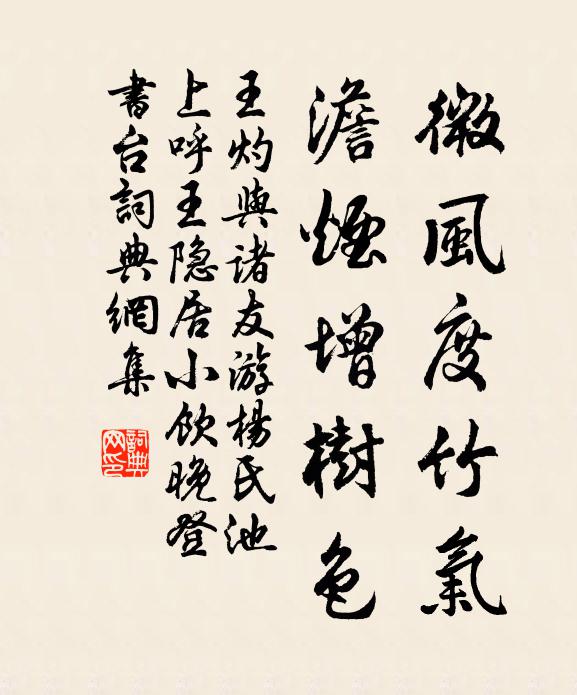 微風度竹氣
澹煙增樹色
王灼與諸友游楊氏池
上呼王隐居小饮晚登
書台詞典網集
詞典
网印